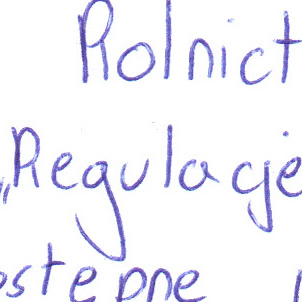 Rolnict
„Regulacje
ostępne